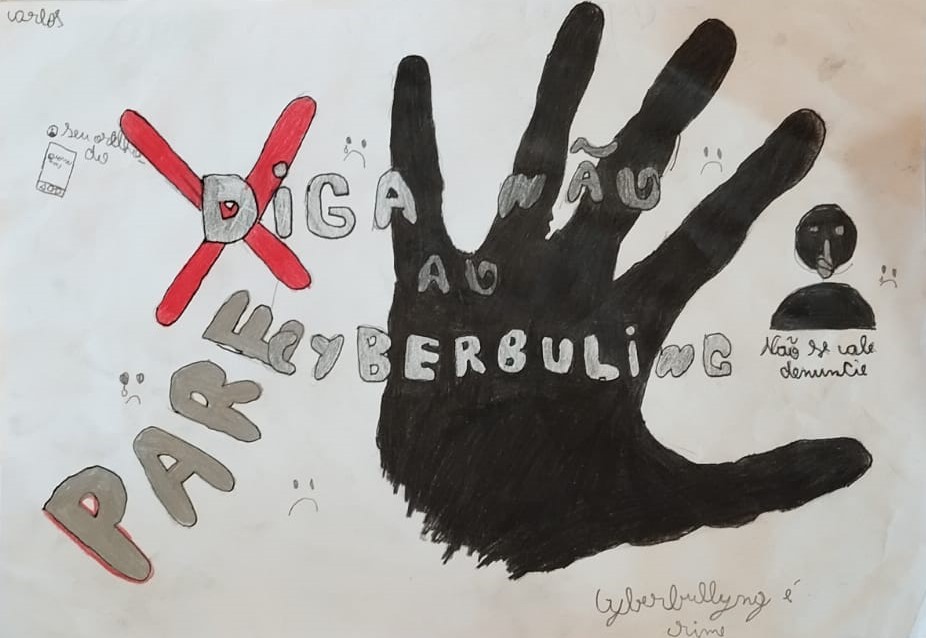 carlos
DiGA NÃO
AO
CYBERBULiNG
PARE
Não se cale
denuncie
Cyberbullyng é
crime